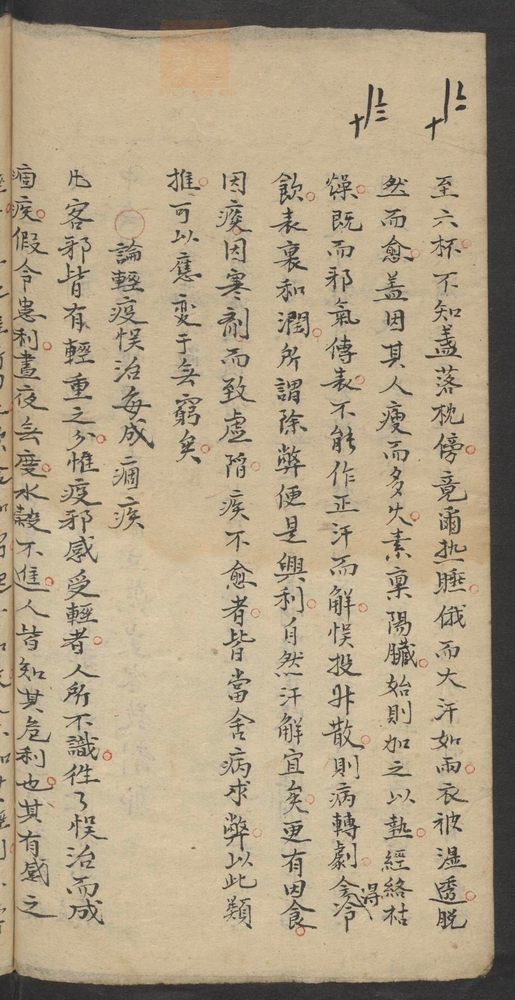 至六杯不知盞落枕傍竟爾熱睡俄而大汗如雨衣被濕透脫
然而愈蓋因其人瘦而多火素稟陽臟始則加之以熱經絡枯
燥既而邪氣傳表不能作正汗而解悞投升散則病轉劇今得冷
飲表裏和潤所謂除弊便是興利自然汗解宜矣更有因食
因痰因寒劑而致虛陷疾不愈者皆當舍病求弊以此類
推可以應变于無窮矣
論輕疫悞治每成痼疾
凡客邪皆有輕重之分惟疫邪感受輕者人所不識徃々悞治而成
痼疾假令患利晝夜無度水穀不進人皆知其危利也其有感之